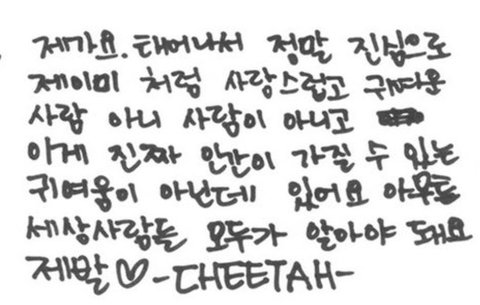 제가요. 태어나서 정말 진심으로
제이미 처럼 사랑스럽고 귀여운
사람 아니 사람이 아니고
이게 진짜 인간이 가질 수 있는
귀여움이 아닌데 있어요 아무튼
세상사람들 모두가 알아야 돼요
제발♡-CHEETAH-